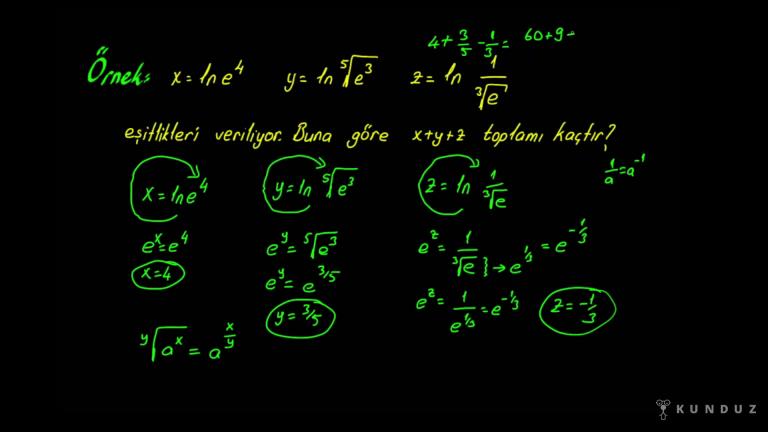 4 + 3/5 - 1/3 = 60+9-
Örnek: x = ln e^4 y = ln ⁵√e^3 z = ln 1/³√e
eşitlikleri veriliyor. Buna göre x+y+z toplamı kaçtır?
1/a = a^-1
x = ln e^4 y = ln ⁵√e^3 z = ln 1/³√e
e^x = e^4 e^y = ⁵√e^3 e^z = 1/³√e } → e^1/3 = e^-1/3
x=4 e^y = e^3/5 e^z = 1/e^1/3 = e^-1/3 z = -1/3
y = 3/5
ʸ√a^x = a^x/y
KUNDUZ